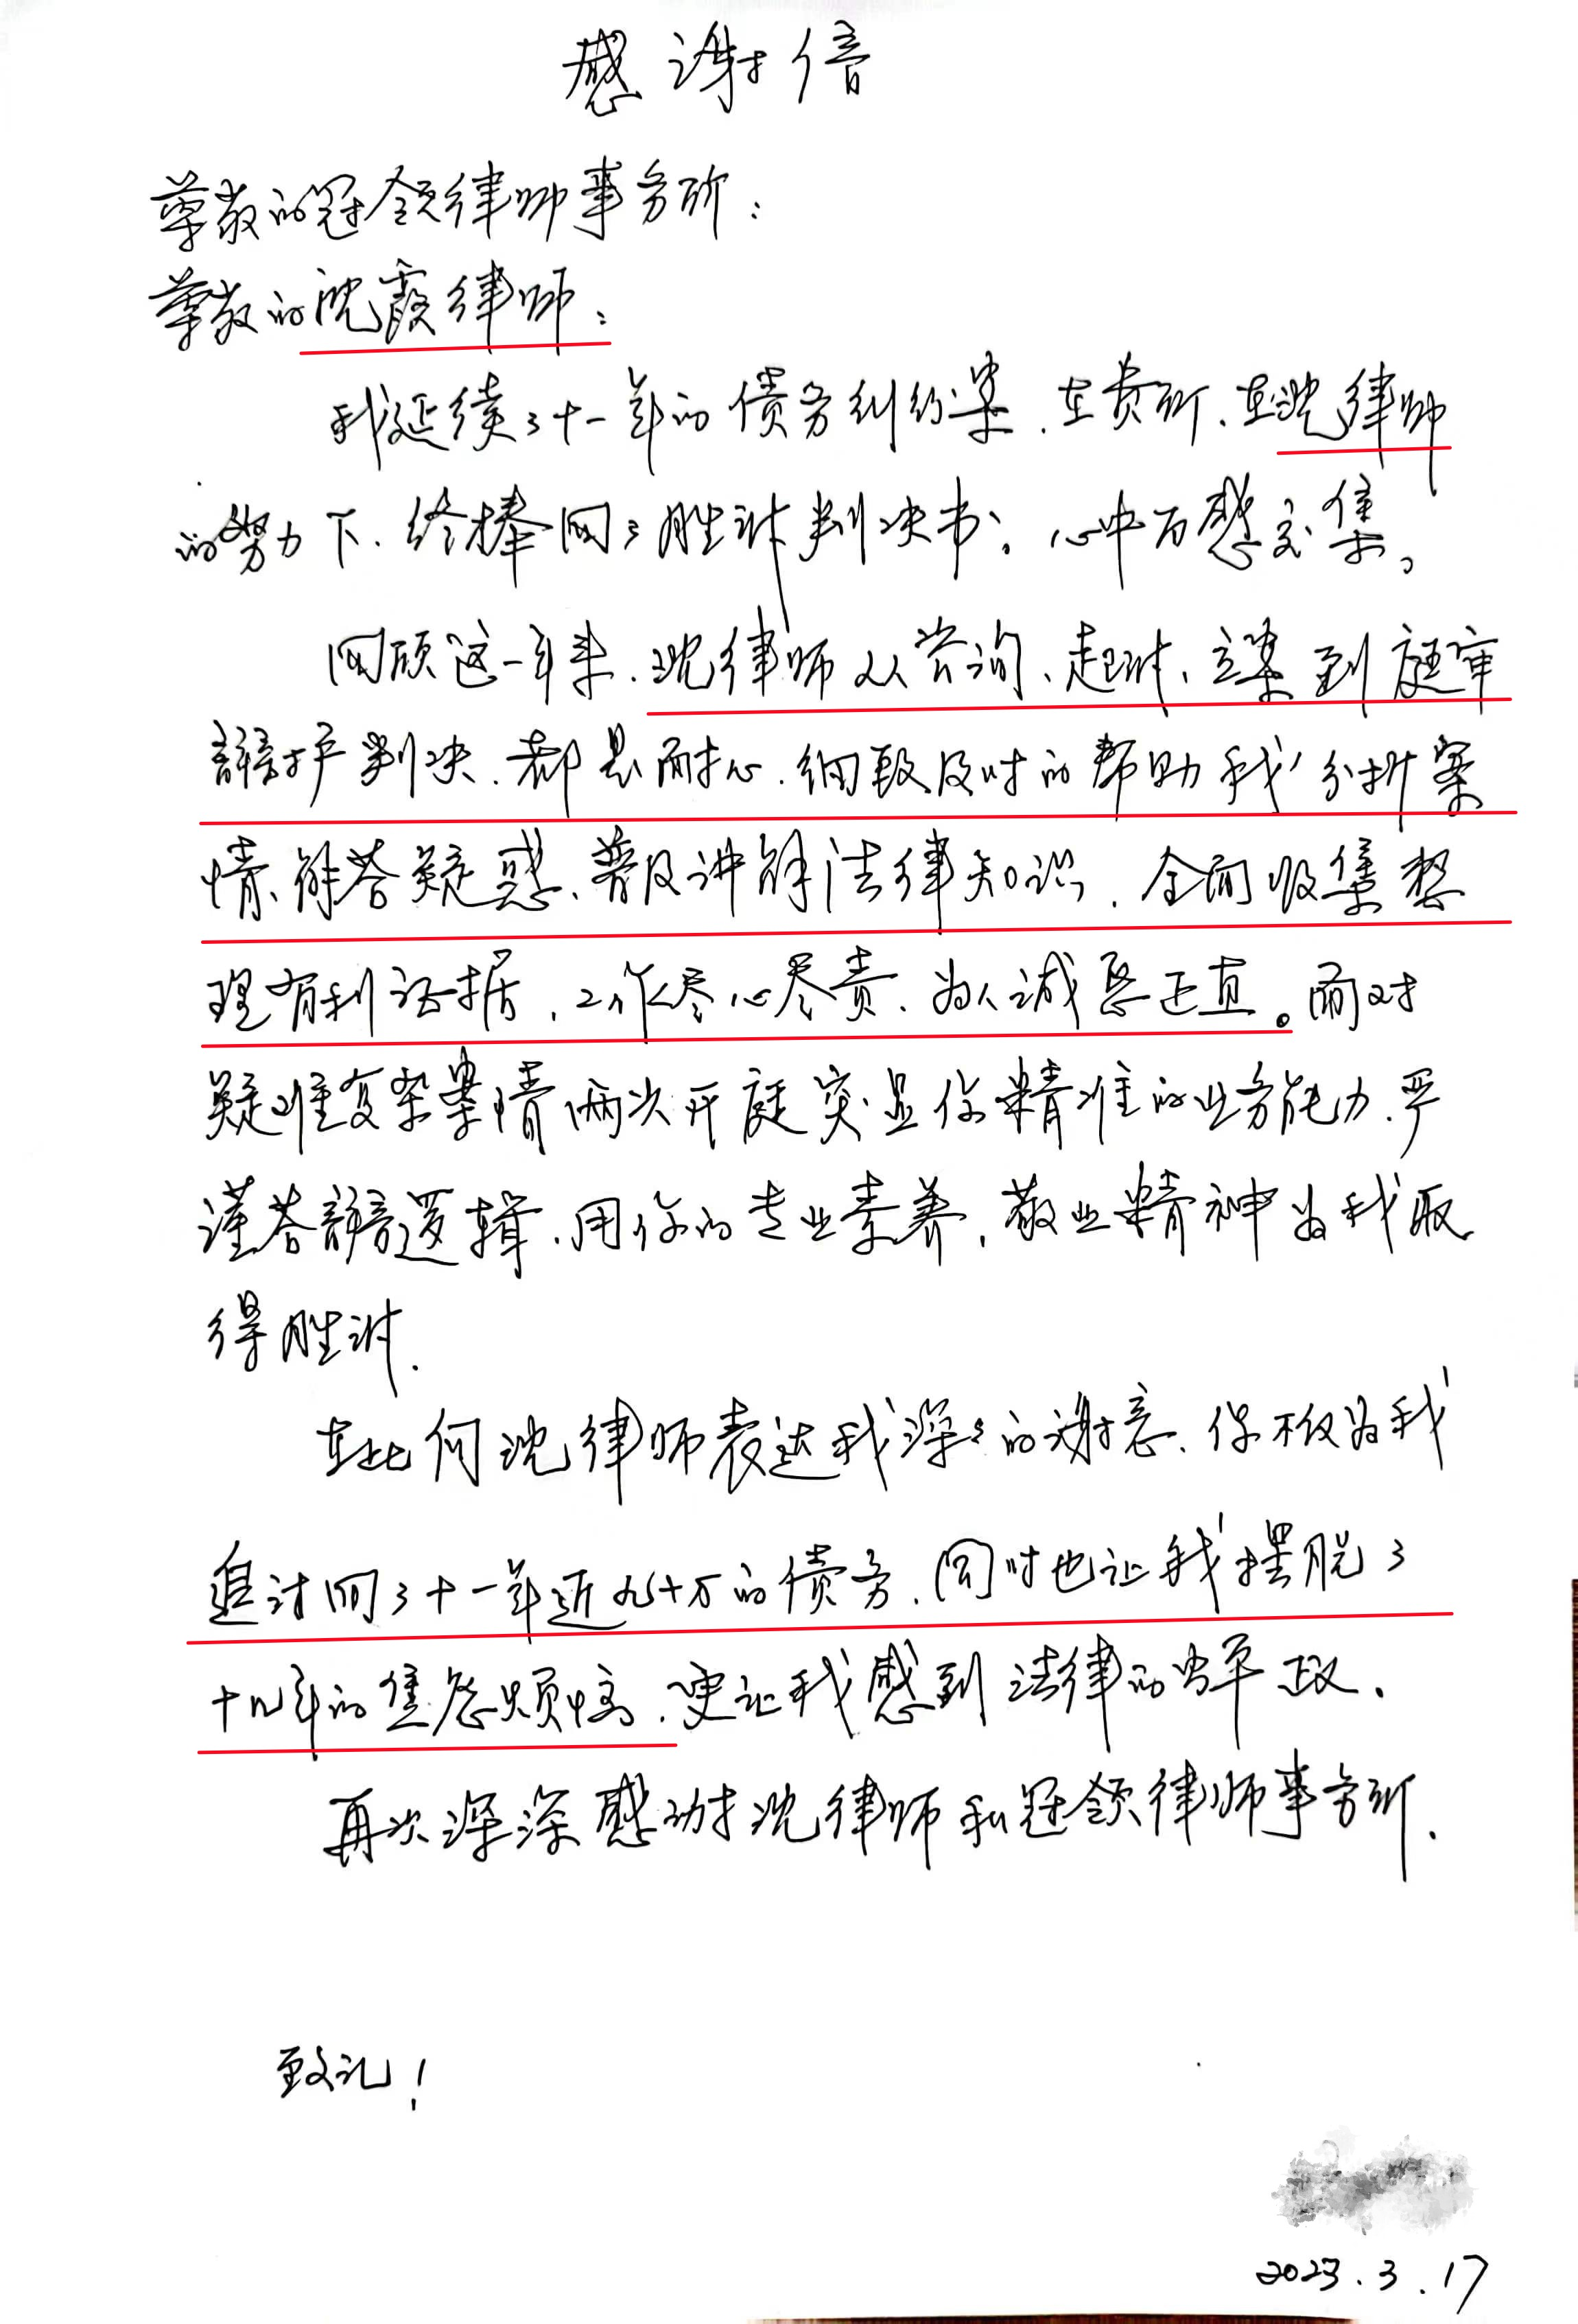 感谢信
尊敬的冠领律师事务所：
尊敬的沈霞律师：
我延续了十一年的债务纠纷案，在贵所、在沈律师
的努力下，终捧回了胜诉判决书，心中百感交集。
回顾这一年来，沈律师从咨询、起诉、立案到庭审
辩护判决，都是耐心、细致及时的帮助我分析案
情、解答疑惑、普及讲解法律知识，全面收集整
理有利证据，工作尽心尽责、为人诚恳正直。面对
疑难复杂案情两次开庭突显你精准的业务能力，严
谨答辩逻辑，用你的专业素养，敬业精神为我取
得胜诉.
在此向沈律师表达我深深的谢意，你不仅为我
追讨回了十一年近九十万的债务，同时也让我摆脱了
十几年的焦虑烦恼，更让我感到法律的公平正义。
再次深深感谢沈律师和冠领律师事务所.
致礼！
2023.3.17